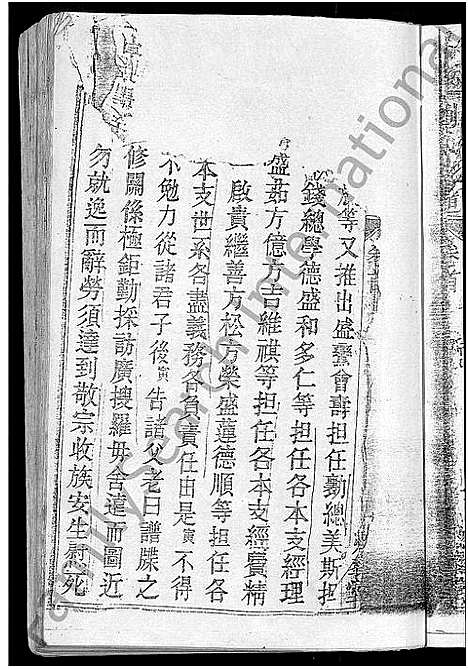 等又推出盛發會壽担任勷總美斯担
錢總學德盛和多仁等担任各本支經理
盛茹方億方吉維祺等担任各本支經賡精
啟貴繼善方松方榮盛蓮德順等担任各
本支世系各盡義務各負責任由是寅不得
不勉力從諸君子後寅告諸父老曰譜牒之
修關係極鉅勤採訪廣搜羅毋舍遠而圖近
勿就逸而辭勞須達到敬宗收族安生慰死
FamilySearch International